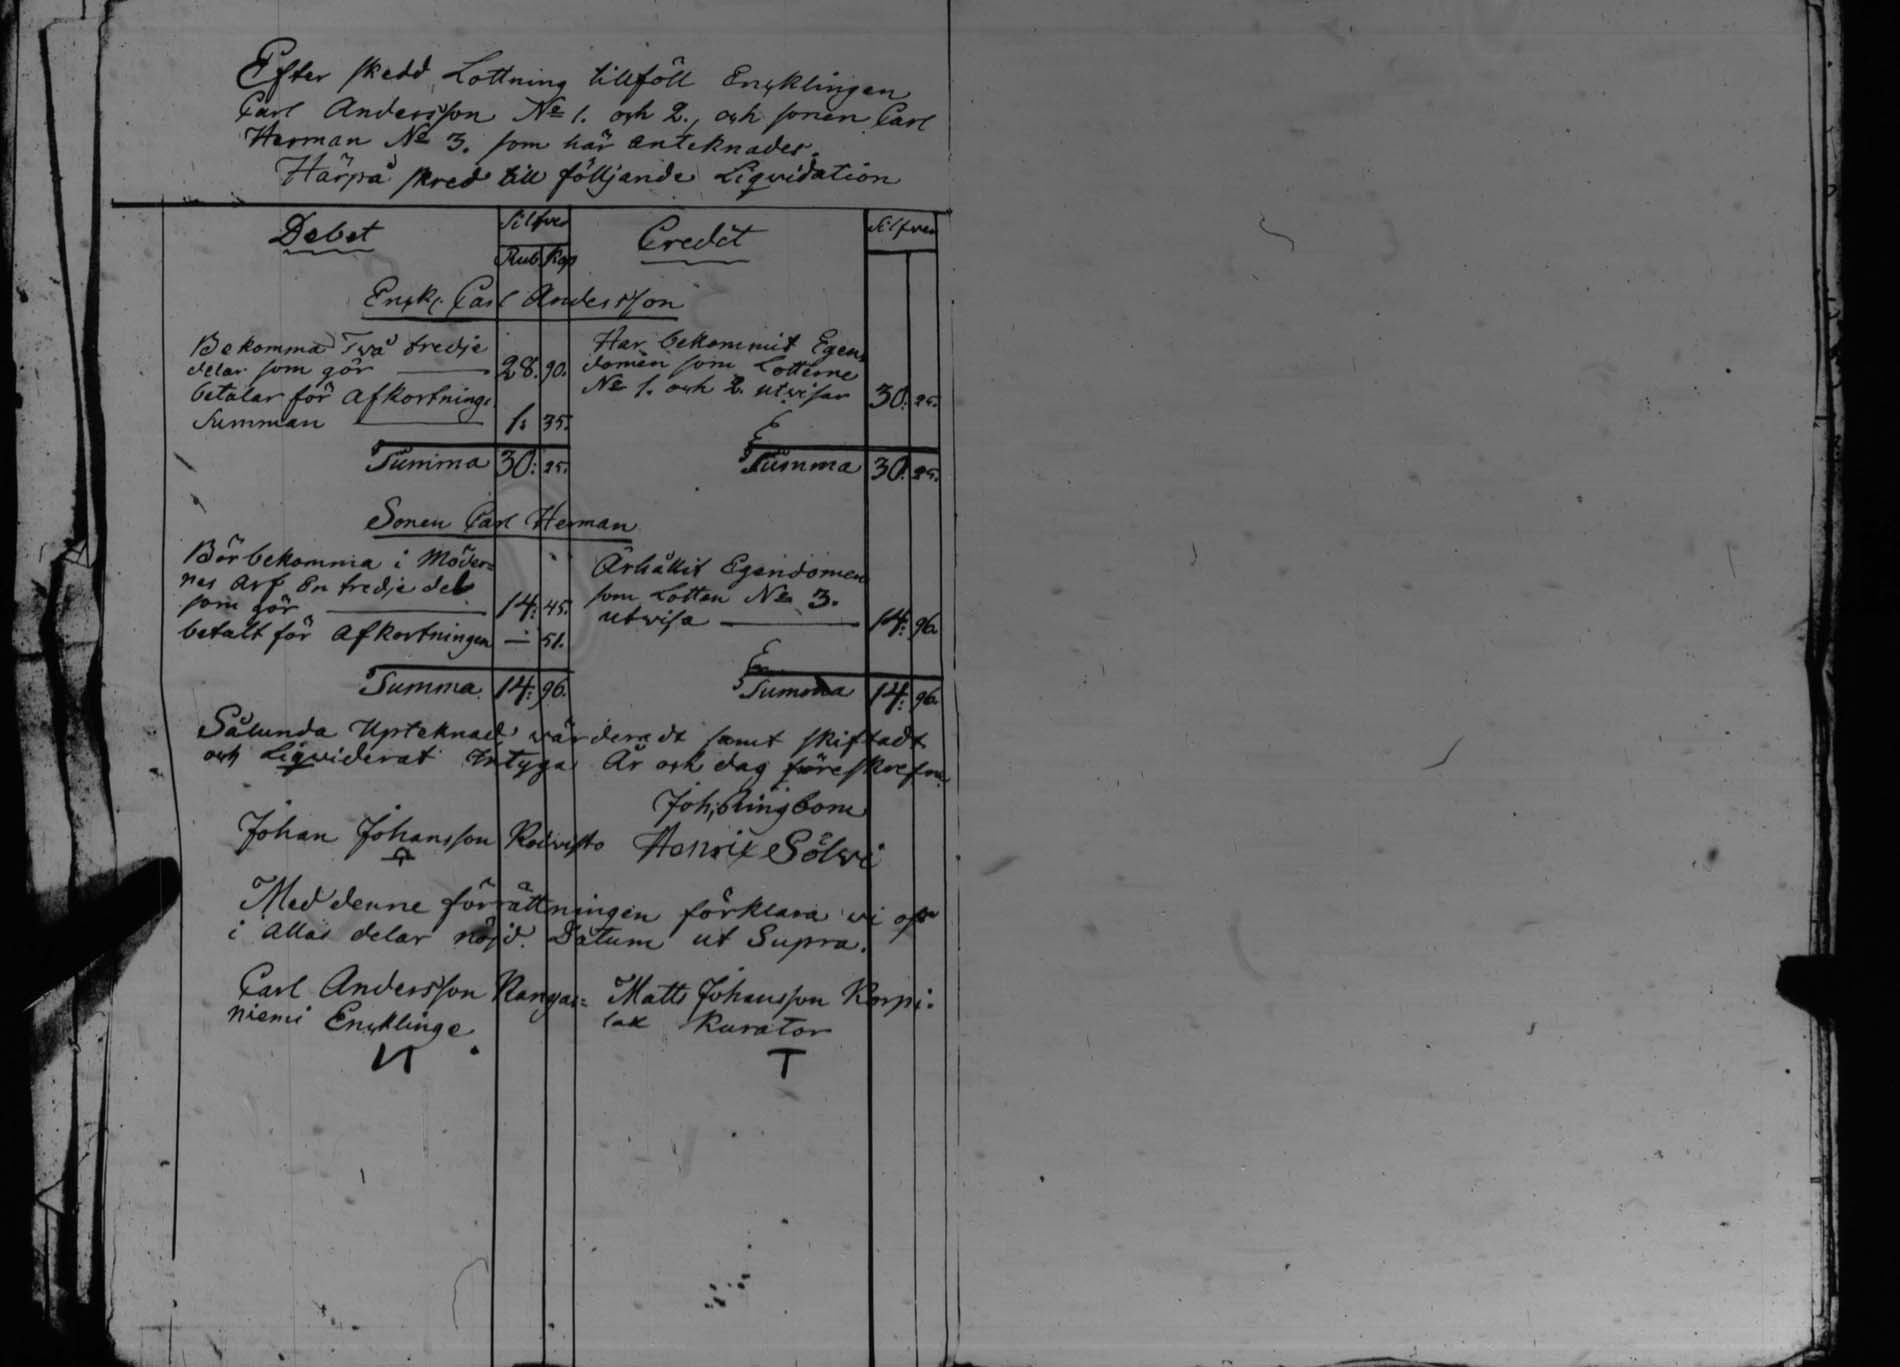 Efter skedd Lottning tillföll Encklingen
Carl Andersson No 1. och 2., och sonen Carl
Herman No 3. som här anteknades.
Härpå skred till följande Liqvidation
Debet Silfver Credit Silfver
Rub Kop
Enckl. Carl Andersson
Bekomma Två tredje
delar som gör 28. 90.
betalar för Afkortnings
Summan 1. 35.
Summa 30: 25.
Har bekommit Egen
domen som Lotterne
No 1. och 2. utvisar 30: 25.
Summa 30: 25.
Sonen Carl Herman
Bör bekomma i Möder-
nes Arf En tredje del
som gör 14: 45.
betalt för Afkortningen — 51.
Summa 14: 96.
Ärhållit Egendomen
som Lotten No 3.
utvisa 14: 96.
Summa 14: 96.
Sålunda Upteknad värderadt samt skiftadt
och Liqviderat Intyga År och dag föreskrefne
Joh: Ringbom
Johan Johansson Koivisto Henric Sölvi
Med denne förrättningen förklara vi oss
i allas delar nöjd. Datum ut Supra.
Carl Andersson Kangas=
niemi Encklinge
Matts Johansson Korpi=
lax Kurator